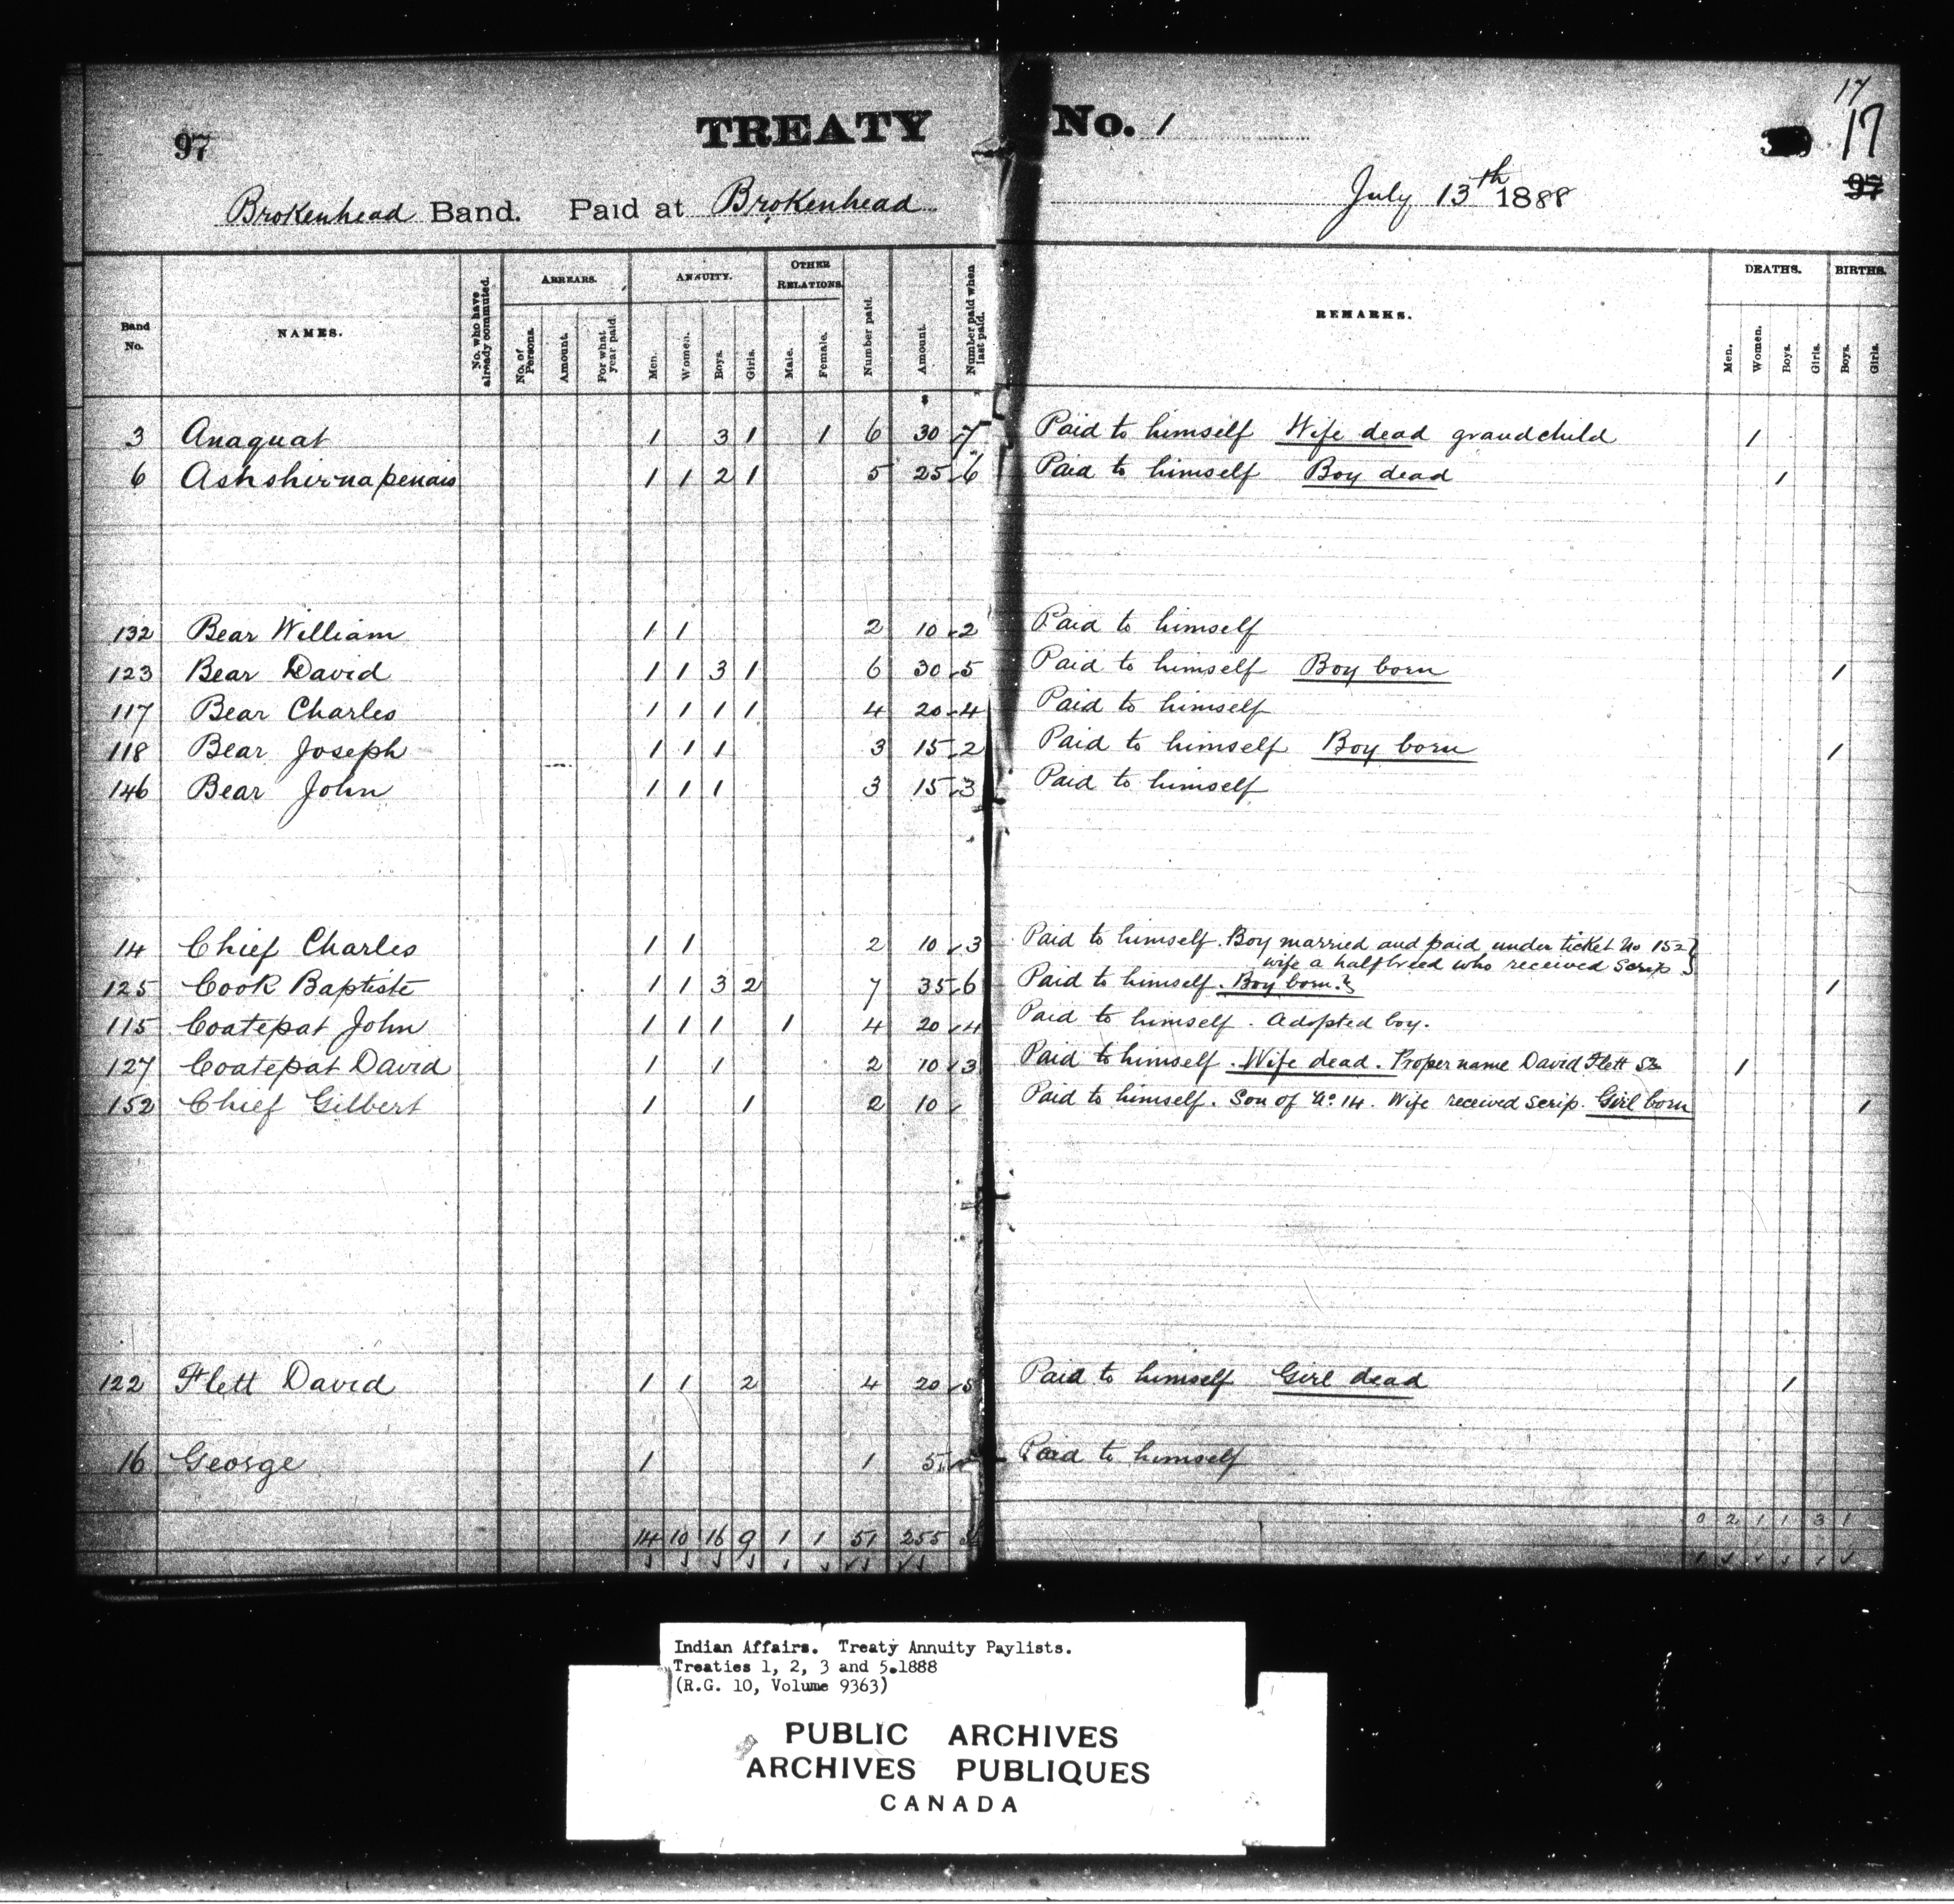 17
97 TREATY No. 1 17
97
Brokenhead Band. Paid at Brokenhead July 13th 1888
Band No. NAMES. No. who have already commuted. ARREARS. No. of Persons. Amount. For what year paid. ANNUITY. Men. Women. Boys. Girls. OTHER RELATIONS. Male. Female. Number paid. Amount. Number paid when last paid. REMARKS. DEATHS. Men. Women. Boys. Girls. BIRTHS. Boys. Girls.
$
3 Anaquat 1 3 1 1 6 30 7 Paid to himself Wife dead grandchild 1
6 1 1 2 1 5 25 6 Paid to himself Boy dead 1
132 Bear William 1 1 2 10 2 Paid to himself
123 Bear David 1 1 3 1 6 30 5 Paid to himself Boy born 1
117 Bear Charles 1 1 1 1 4 20 4 Paid to himself
118 Bear Joseph 1 1 1 3 15 2 Paid to himself Boy born 1
146 Bear John 1 1 1 3 15 3 Paid to himself
14 Chief Charles 1 1 2 10 3 Paid to himself. Boy married and paid under ticket No 152
wife a halfbreed who received Scrip
125 Cook Baptiste 1 1 3 2 7 35 6 Paid to himself. Boy born. 1
115 Coatepat John 1 1 1 1 4 20 4 Paid to himself. Adopted boy.
127 Coatepat David 1 1 2 10 3 Paid to himself. Wife dead. Proper name David Flett 1
152 Chief Gilbert 1 1 2 10 Paid to himself. Son of No. 14. Wife received scrip. Girl born 1
122 Flett David 1 1 2 4 20 5 Paid to himself Girl dead 1
16 George 1 1 5 Paid to himself
14 10 16 9 1 1 51 255 0 2 1 1 3 1
Indian Affairs. Treaty Annuity Paylists.
Treaties 1, 2, 3 and 5.1888
(R.G. 10, Volume 9363)
PUBLIC ARCHIVES
ARCHIVES PUBLIQUES
CANADA